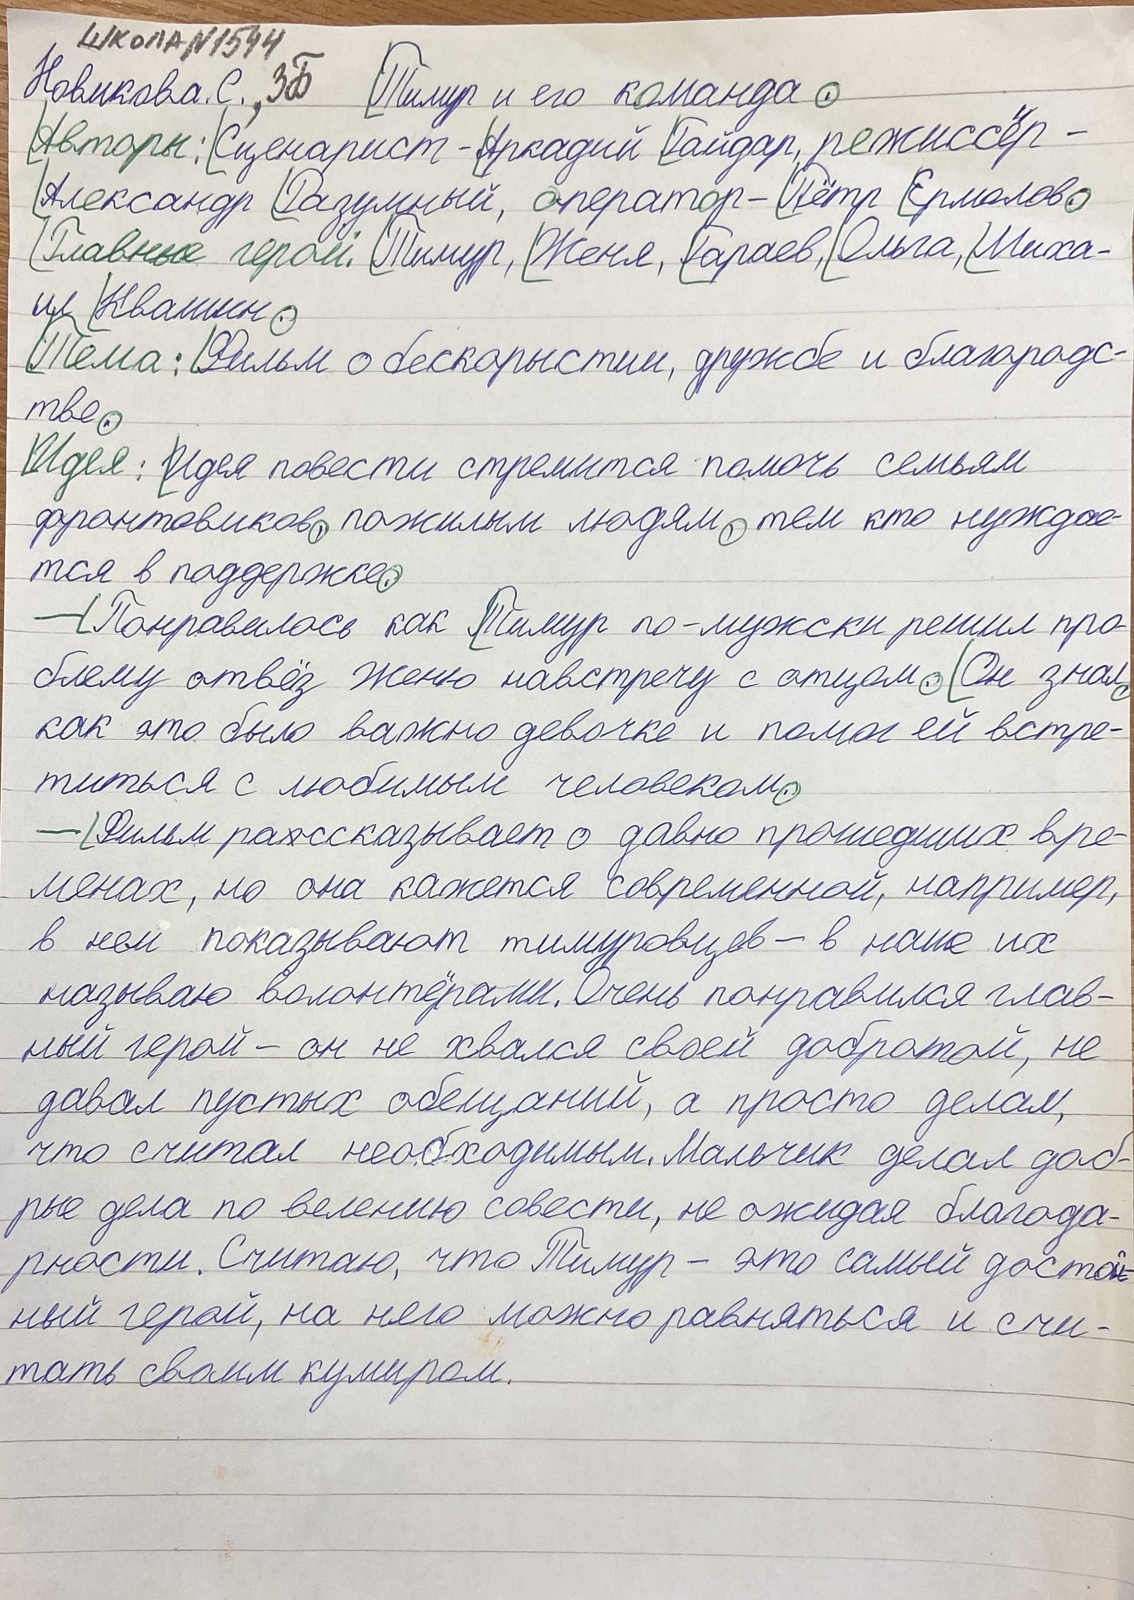 ШКОЛА №1544
Новикова. С., 3Б Тимур и его команда.
Авторы: Сценарист - Аркадий Гайдар, режиссёр -
Александр Разумный, оператор - Пётр Ермолов.
Главные герои: Тимур, Женя, Гараев, Ольга, Миха-
ил Квакин.
Тема: Фильм о бескорыстии, дружбе и благородс-
тве.
Идея: Идея повести стремится помочь семьям
фронтовиков, пожилым людям, тем кто нуждае-
тся в поддержке.
— Понравилось как Тимур по-мужски решил про-
блему отвёз Женю навстречу с отцом. Он знал,
как это было важно девочке и помог ей встре-
титься с любимым человеком.
— Фильм рассказывает о давно прошедших вре-
менах, но она кажется современной, например,
в нем показывают тимуровцев — в наше их
называю волонтёрами. Очень понравился глав-
ный герой - он не хвался своей добротой, не
давал пустых обещаний, а просто делал,
что считал необходимым. Мальчик делал доб-
рые дела по велению совести, не ожидая благода-
рности. Считаю, что Тимур - это самый достой-
ный герой, на него можно равняться и счи-
тать своим кумиром.